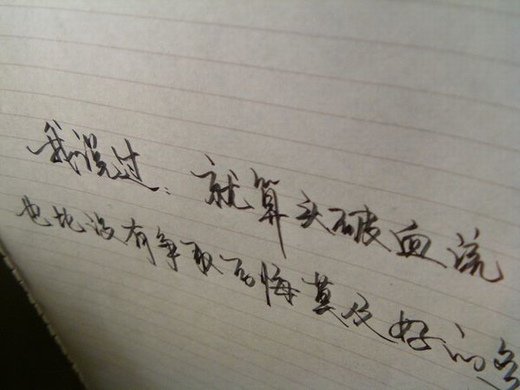 我说过.就算头破血流
也比没有争取而悔莫及好的多